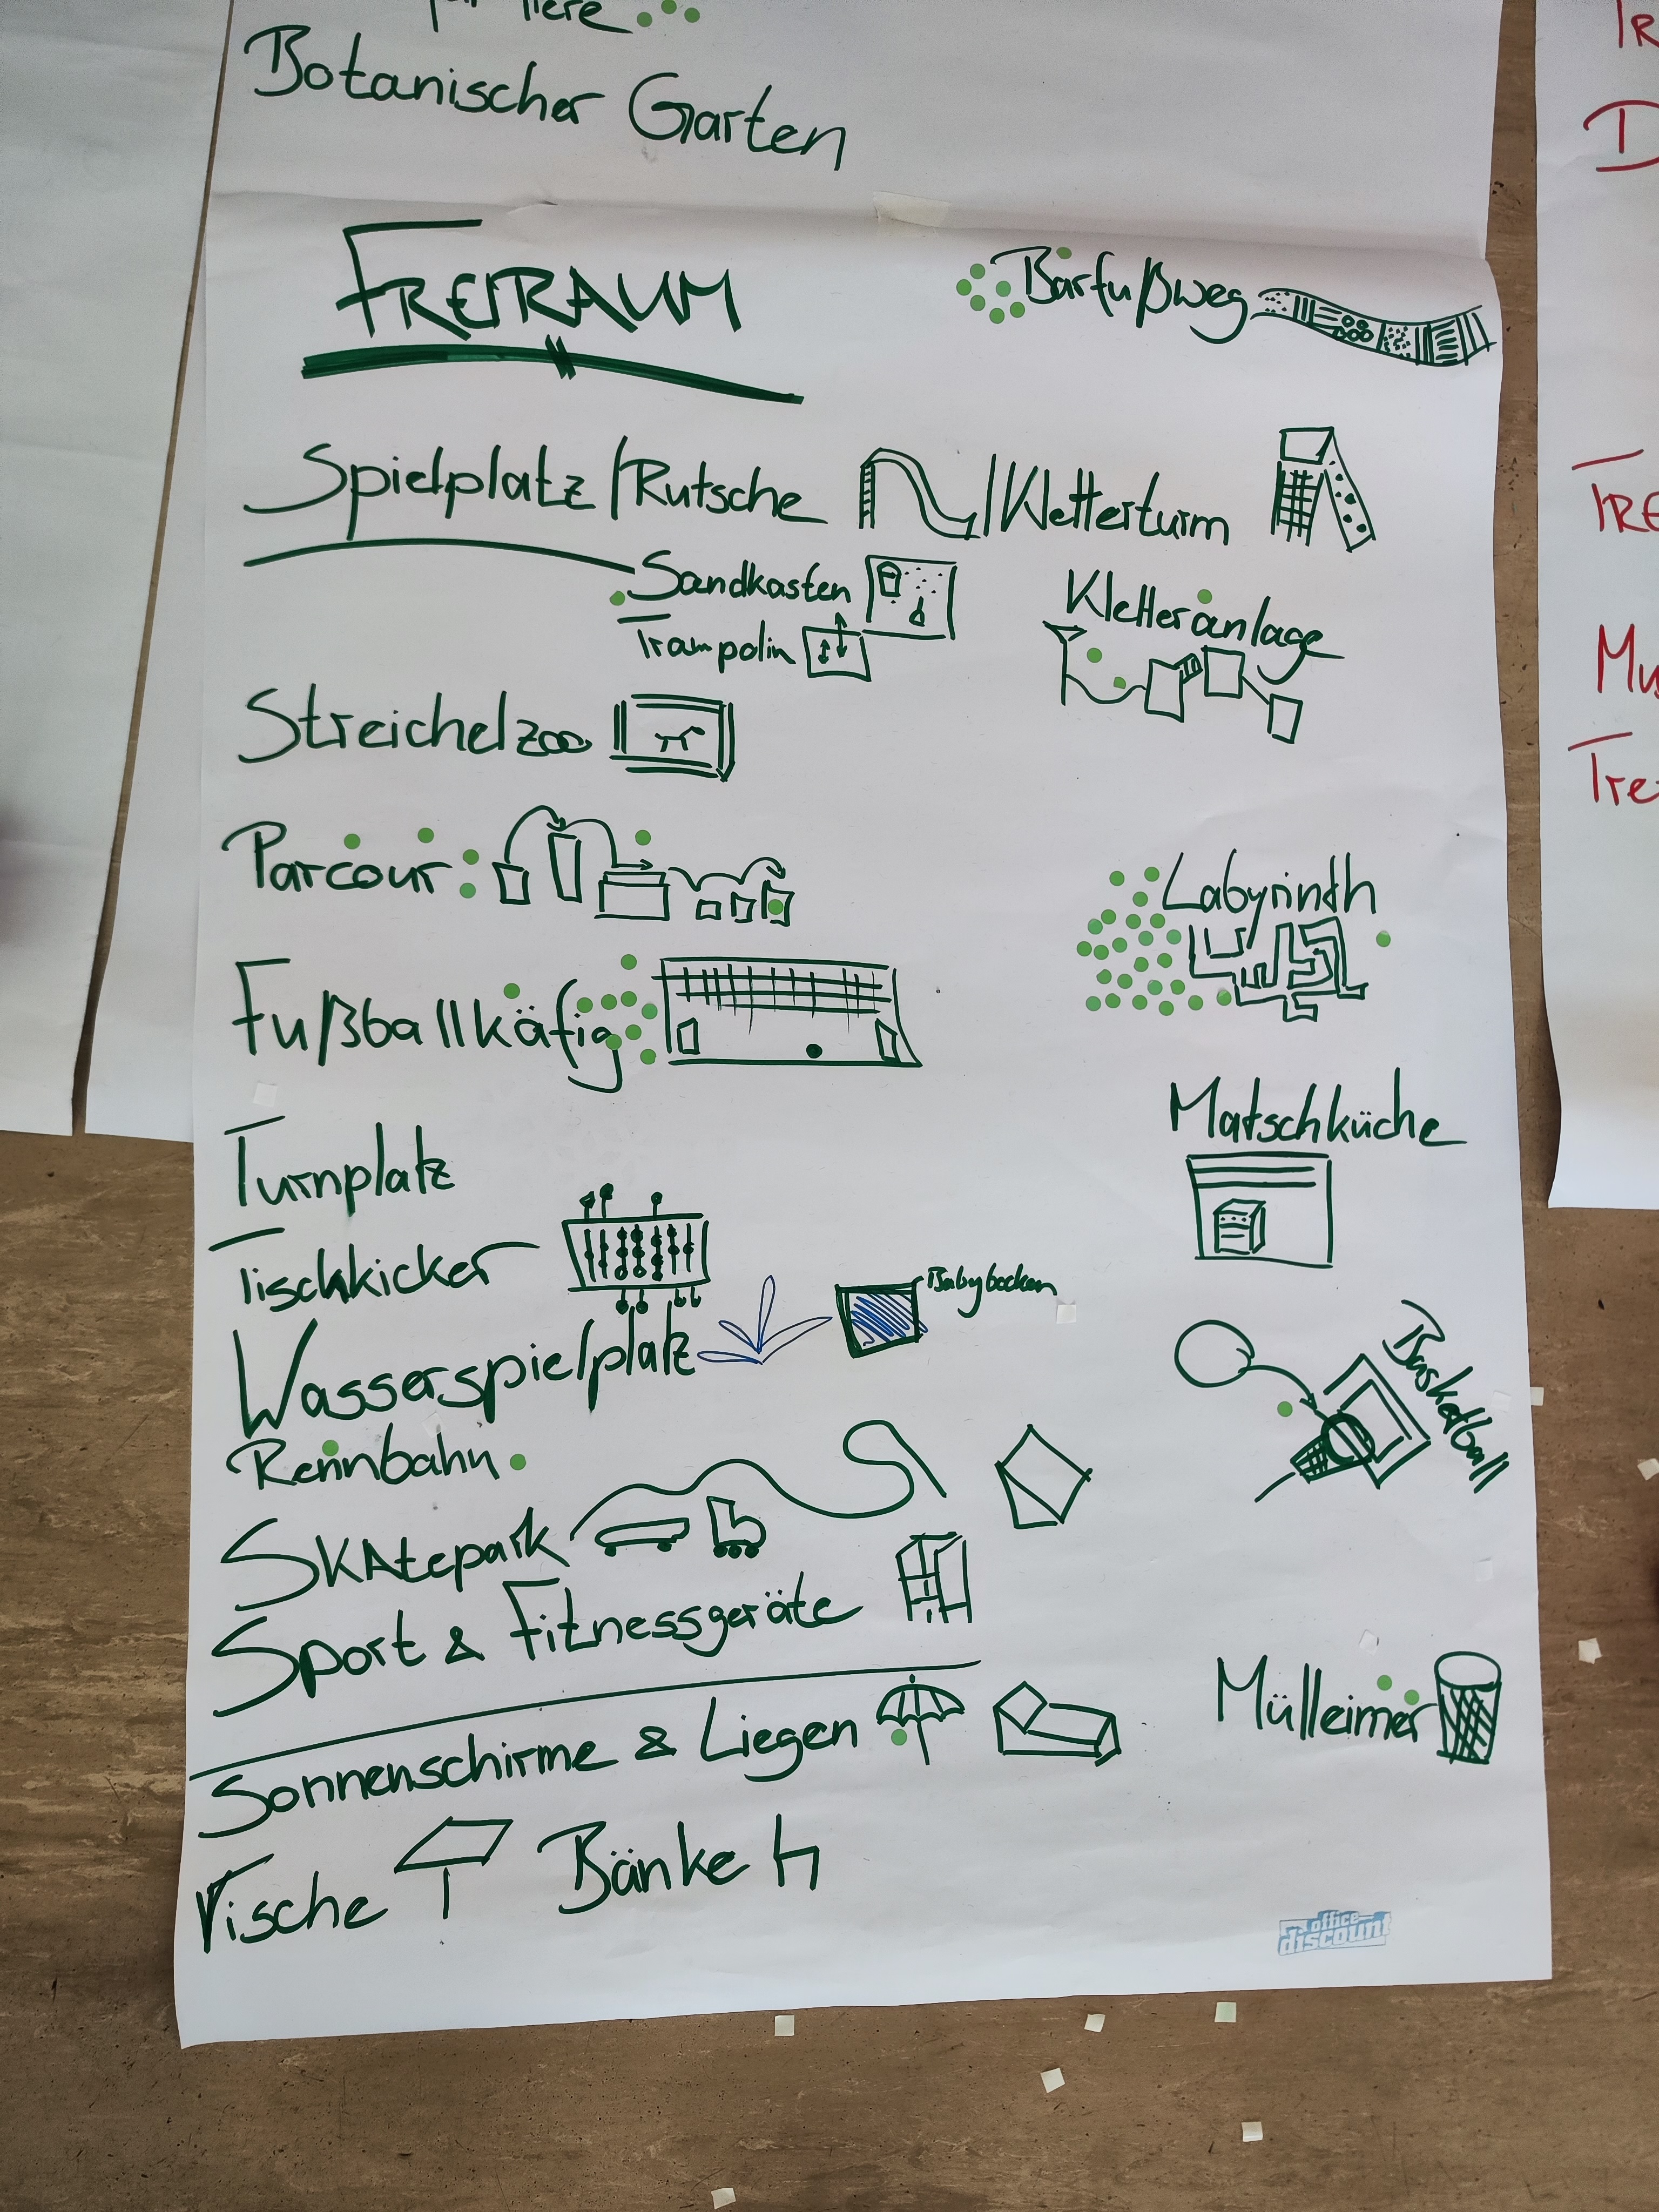 für Tiere
Botanischer Garten
FREIRAUM
Barfußweg
Spielplatz/Rutsche /Kletterturm
Sandkasten
Trampolin
Kletteranlage
Streichelzoo
Parcour
Labyrinth
Fußballkäfig
Matschküche
Turnplatz
Tischkicker
Babybecken
Wasserspielplatz
Basketball
Rennbahn
SKAtepark
Sport & Fitnessgeräte
Mülleimer
Sonnenschirme & Liegen
Tische Bänke
office
discount